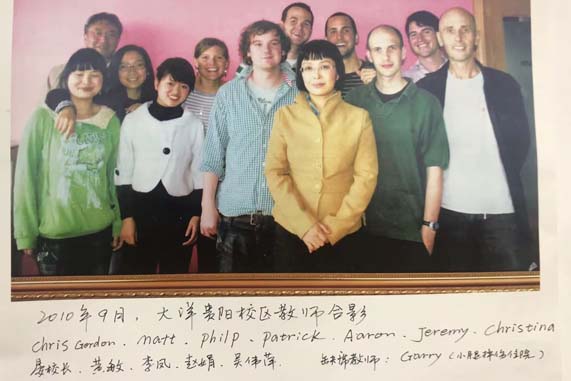 2010年9月，大洋贵阳校区教师合影
Chris Gordon. matt. philp. patrick. Aaron. Jeremy. Christina
晏校长、黄敏、李凤、赵娟、吴伟萍 缺席教师：Garry（小腿摔伤住院）